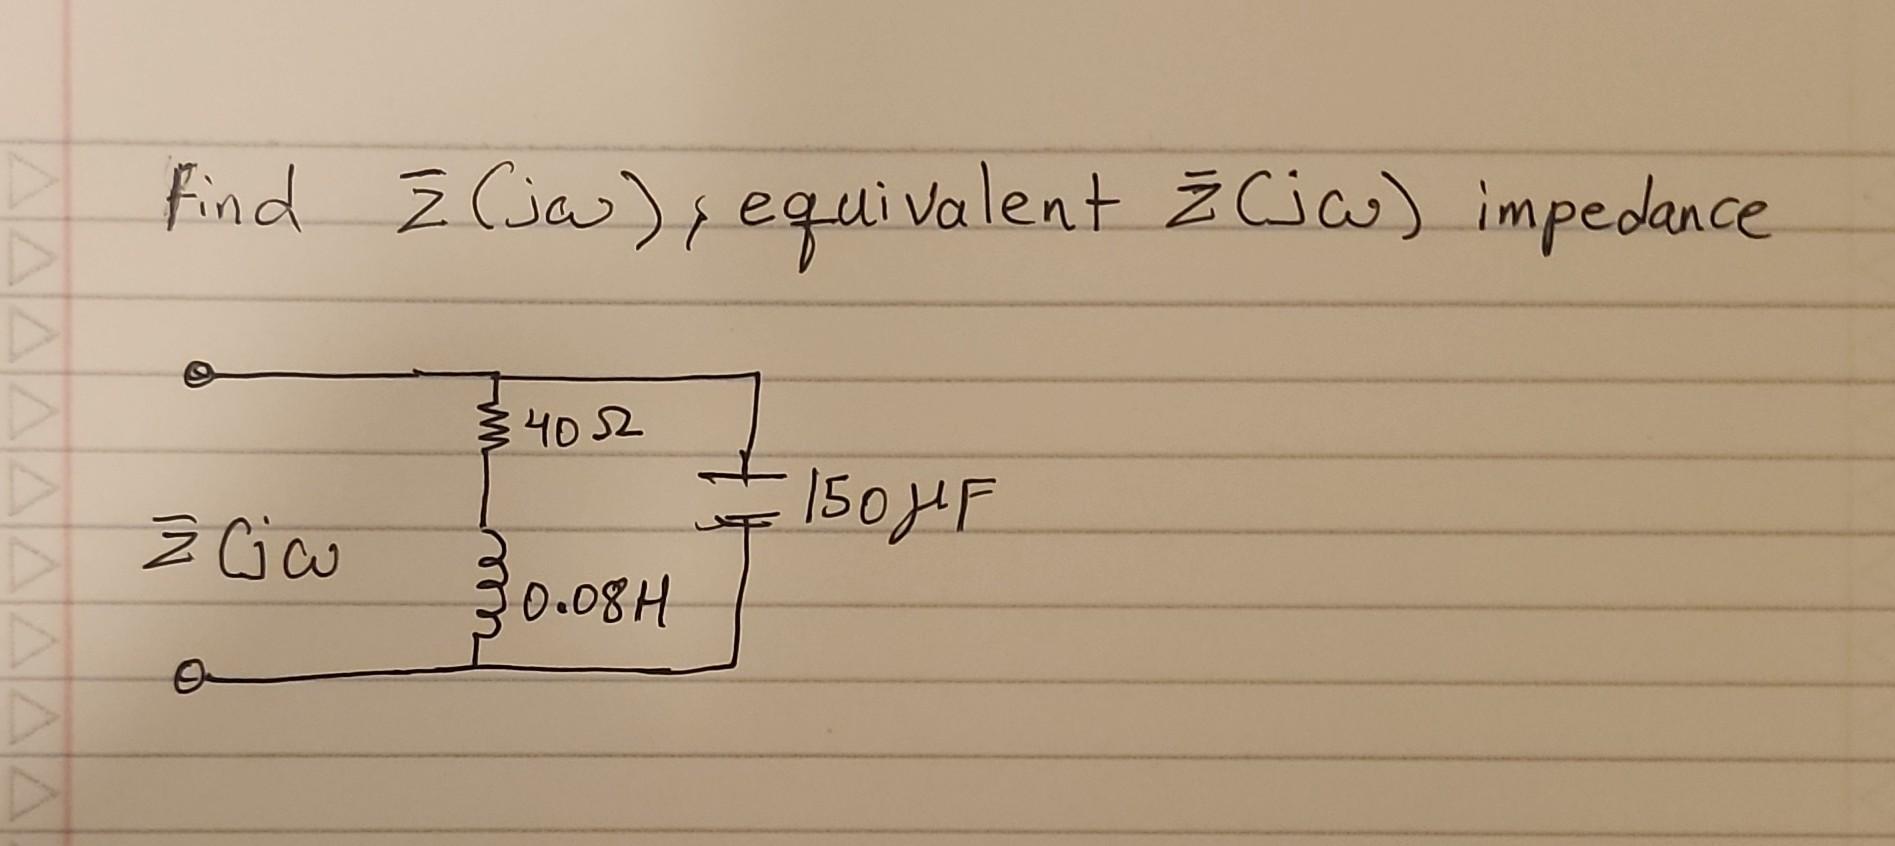 Find Z̄(jω), equivalent Z̄(jω) impedance
40Ω
150μF
Z̄(jω
0.08H